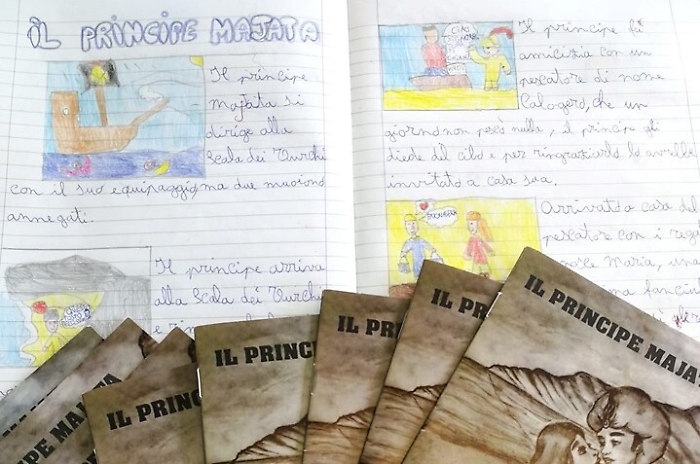 IL PRINCIPE MAJATA
Il principe
Majata si
dirige alla
Scala dei Turchi
con il suo equipaggio, ma due muoiono
annegati.
Il principe arriva
alla Scala dei Turchi
e rim
Il principe fà
amicizia con un
pescatore di nome
Calogero, che un
giorno non pescò nulla, il principe gli
diede dil cibo e per ringraziarlo lo avrebbe
invitato a casa sua.
CIAO
Arrivato a casa del
pescatore con i rega
Maria, una
ma fanciul
IL PRINCIPE MAJATA
IL PRI
IL PR
IL PRINCI
IL PRINC
IPE MAJATA